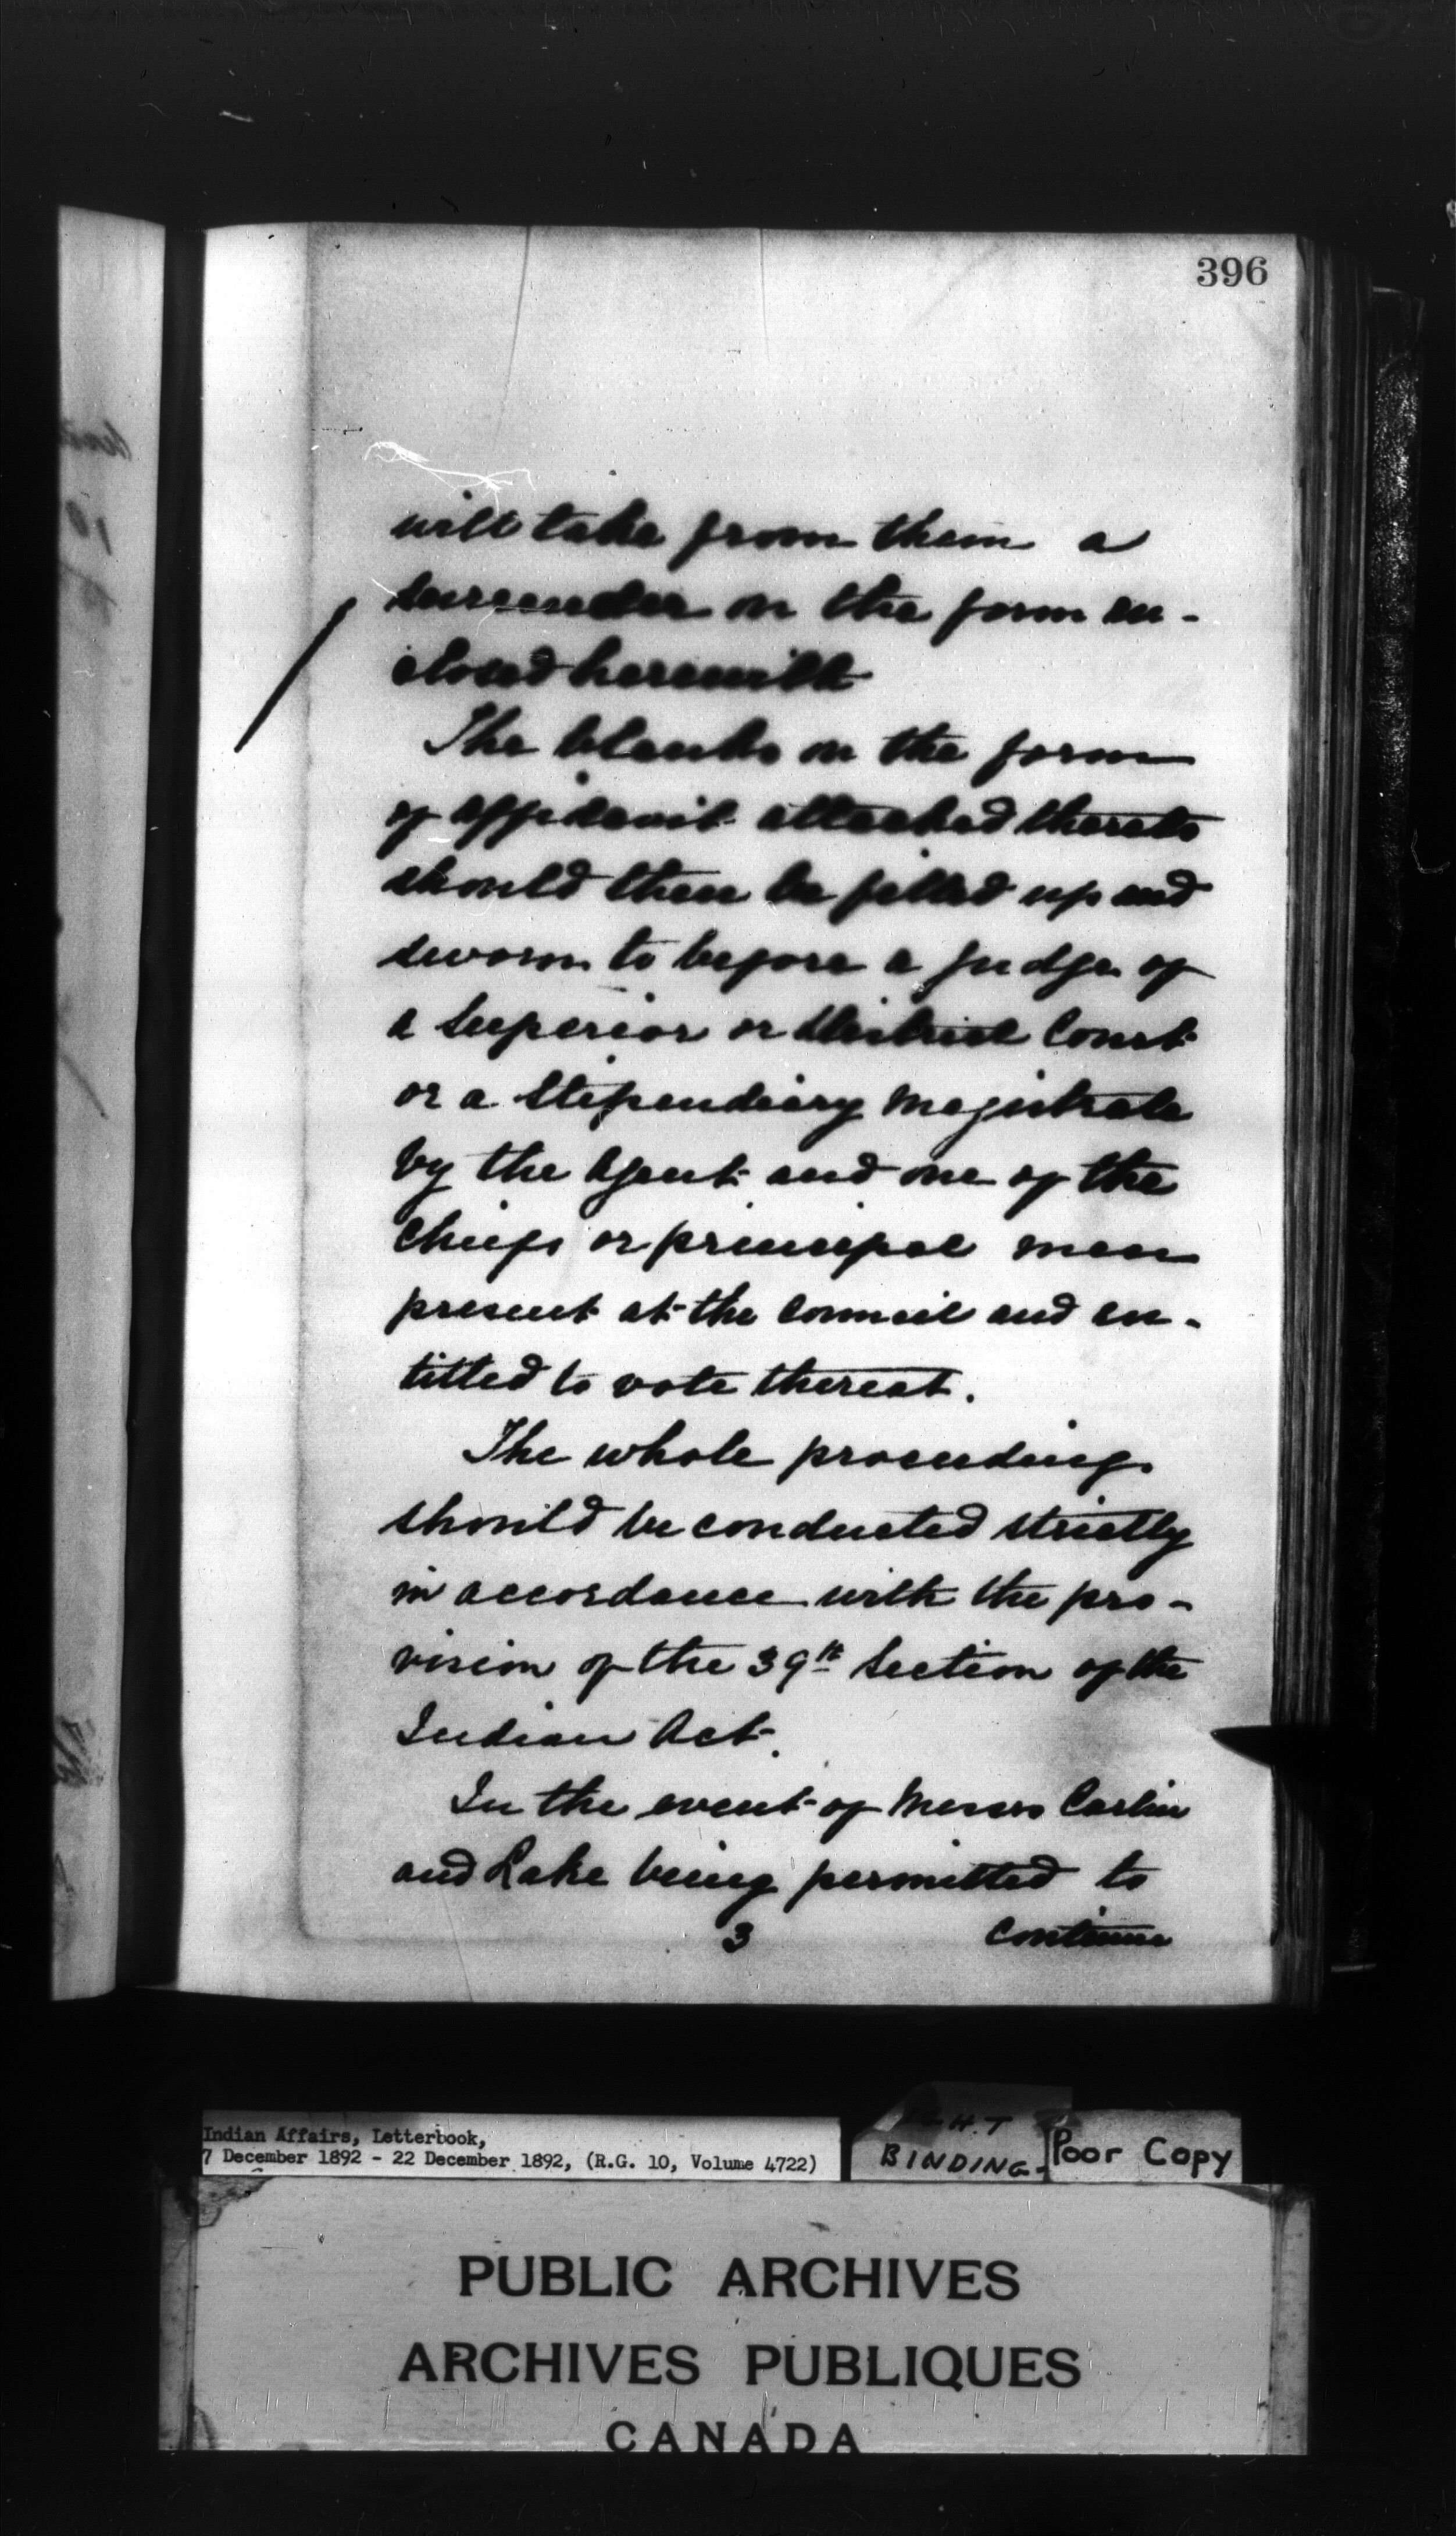 396
will take from them a
surrender on the form en-
closed herewith
The blanks on the form
of affidavit attached thereto
should then be filled up and
sworn to before a Judge of
a Superior or District Court
or a Stipendiary Magistrate
by the Agent and one of the
Chiefs or principal men
present at the Council and en-
titled to vote thereat.
The whole proceedings
should be conducted strictly
in accordance with the pro-
vision of the 39th Section of the
Indian Act.
In the event of Messrs Carlin
and Lake being permitted to
3 continue
Indian Affairs, Letterbook,
7 December 1892 - 22 December 1892, (R.G. 10, Volume 4722)
BINDING-
Poor Copy
PUBLIC ARCHIVES
ARCHIVES PUBLIQUES
CANADA